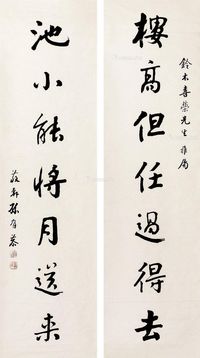 樓高但任過得去
鈴木喜榮先生雅屬
池小能將月送來